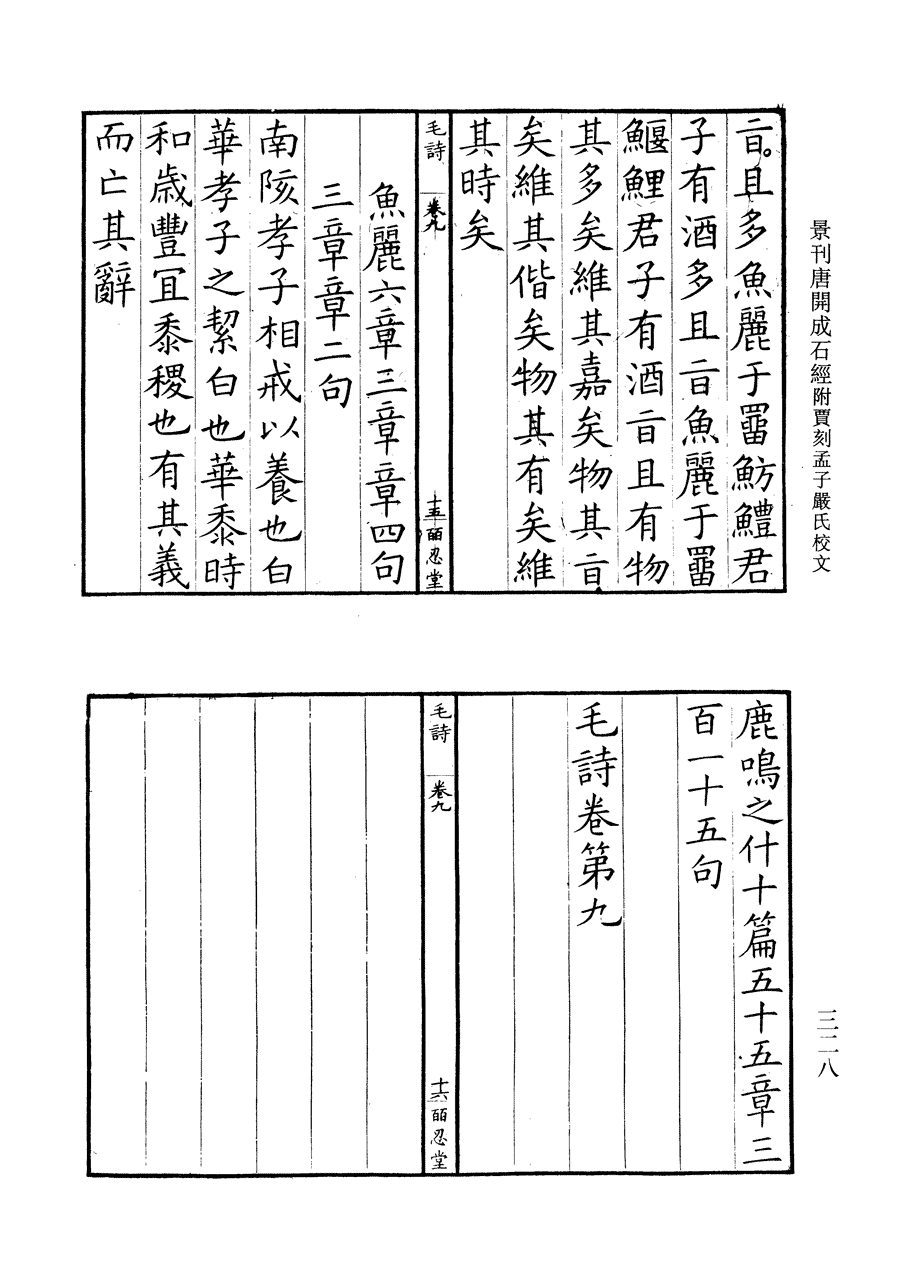 景刊唐開成石經附賈刻孟子嚴氏校文
三二八
㫖且多魚麗于罶魴鱧君
子有酒多且㫖魚麗于罶
鰋鯉君子有酒㫖且有物
其多矣維其嘉矣物其㫖
矣維其偕矣物其有矣維
其時矣
毛詩 卷九 十五 皕忍堂
魚麗六章三章章四句
三章章二句
南陔孝子相戒以養也白
華孝子之絜白也華黍時
和歲豐冝黍稷也有其義
而亡其辭
鹿鳴之什十篇五十五章三
百一十五句
毛詩卷第九
毛詩 卷九 十六 皕忍堂